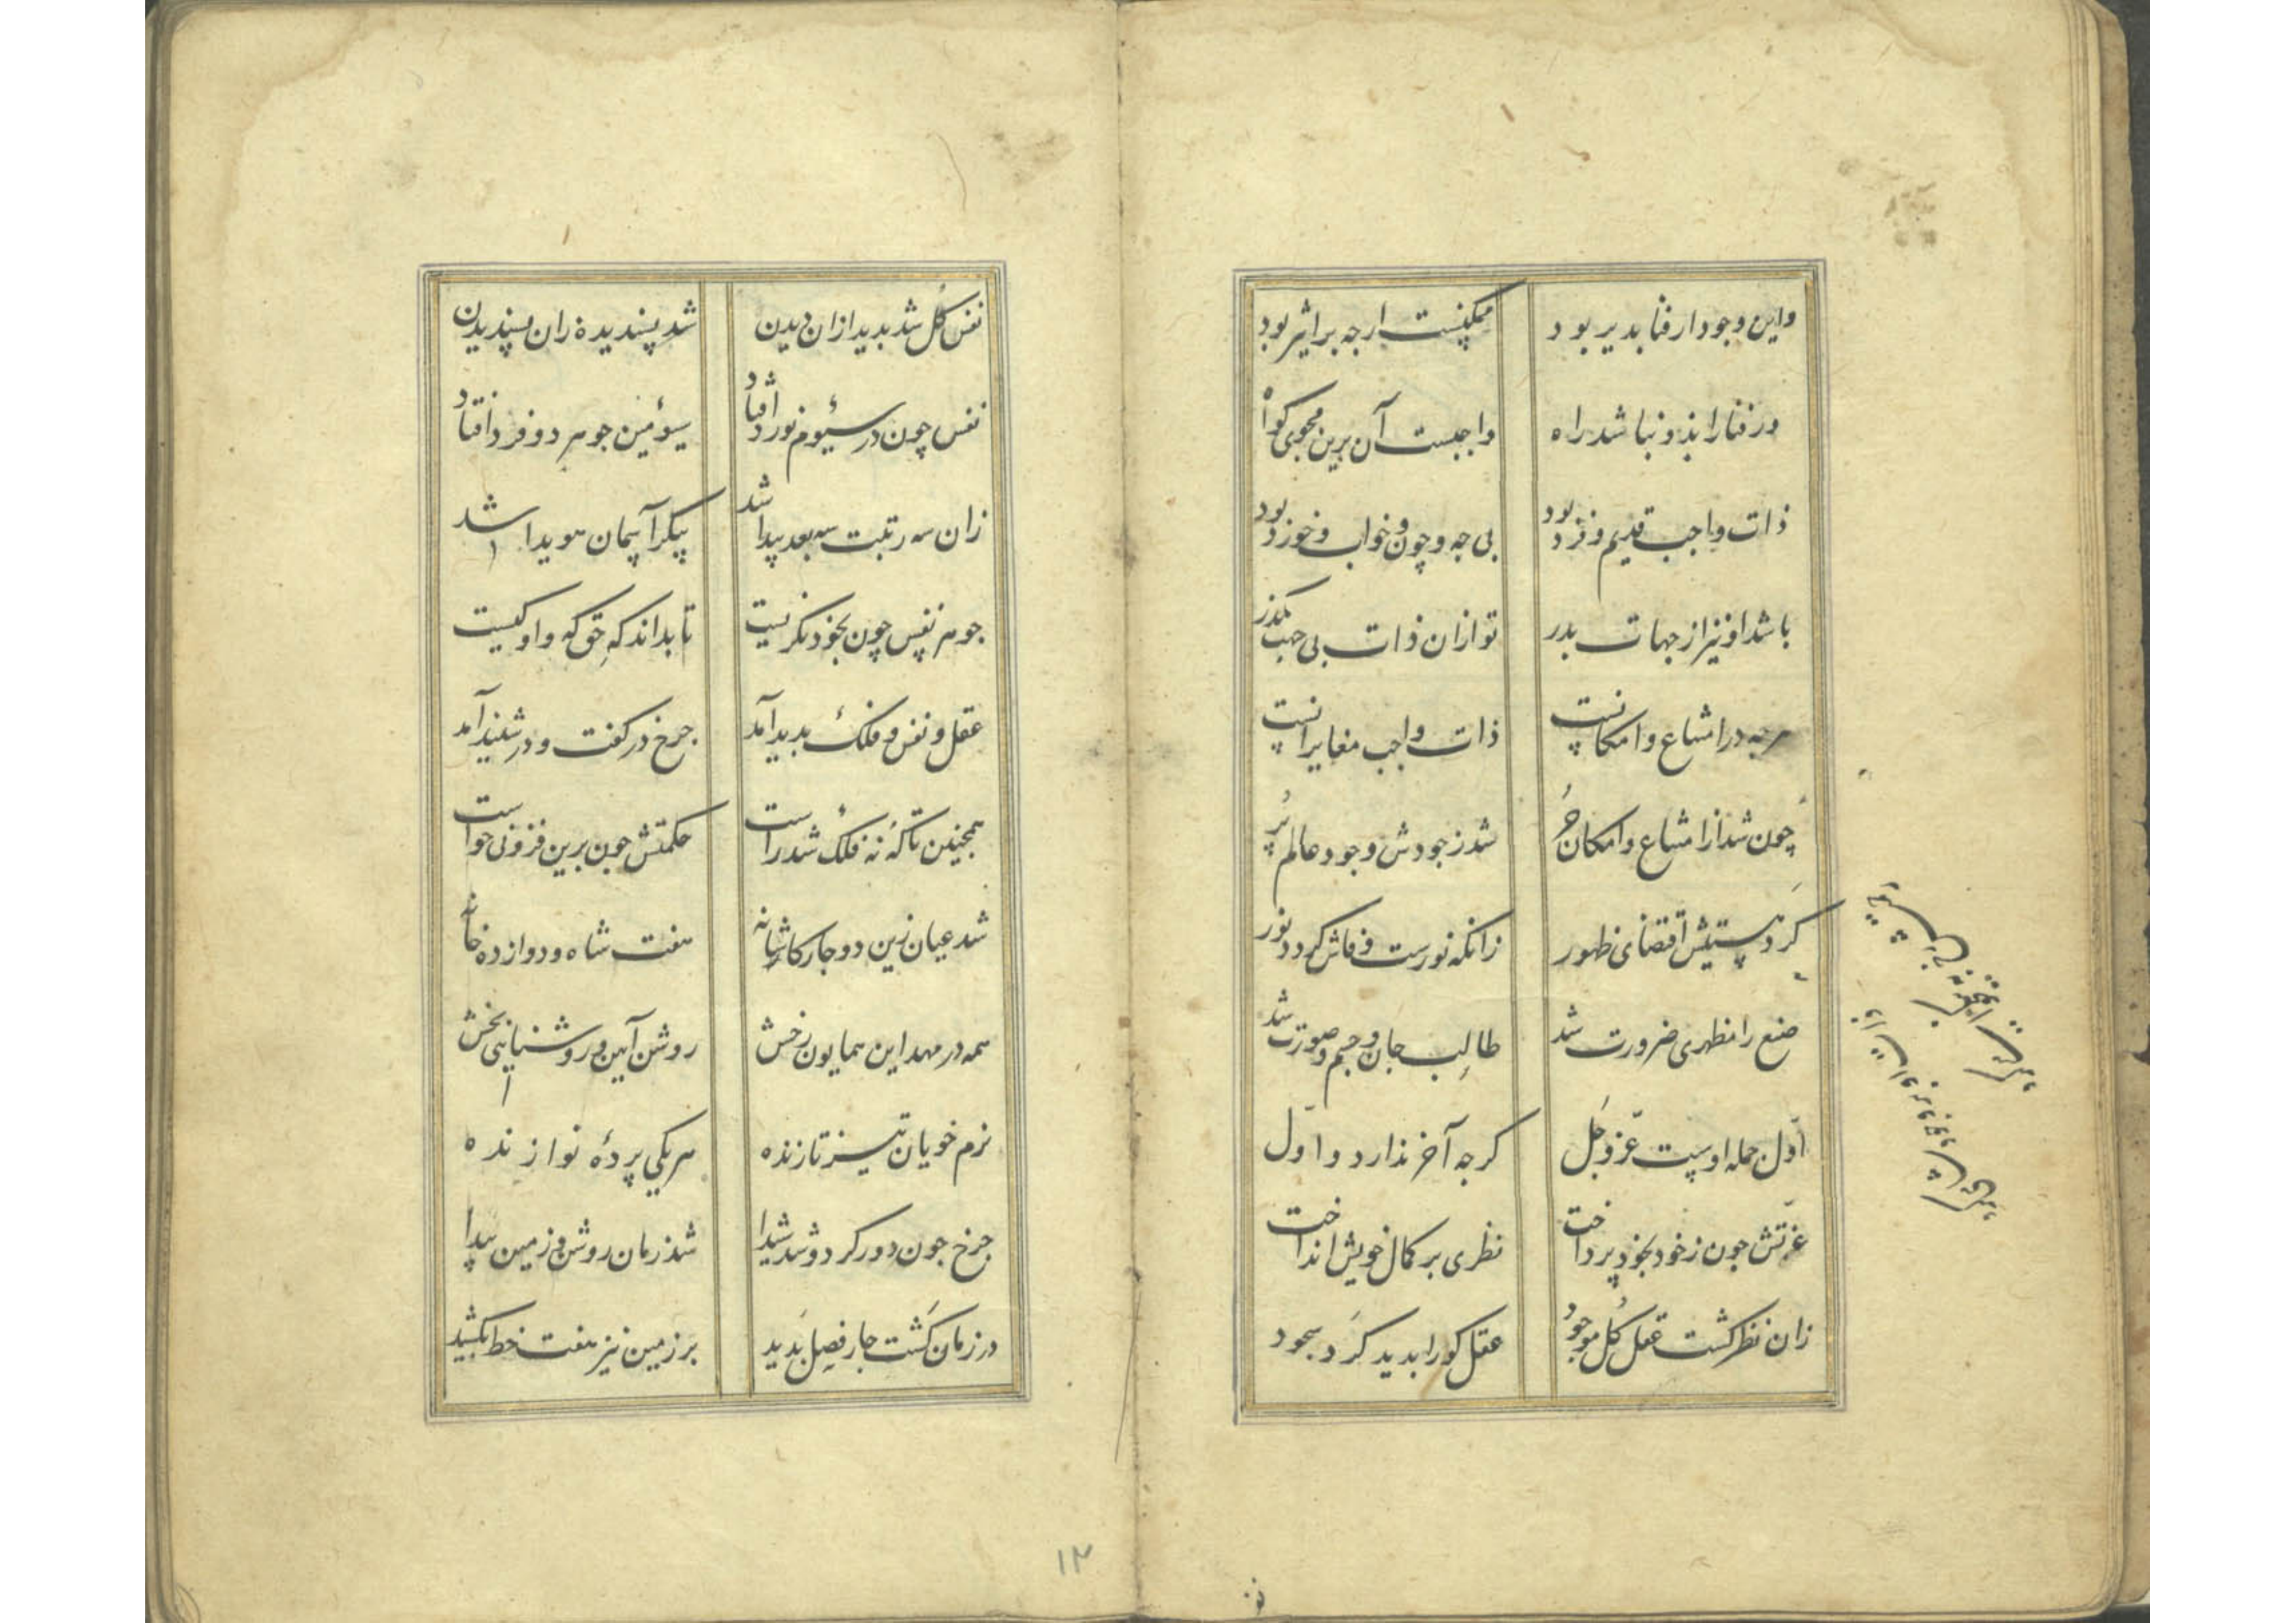 واین وجود ار فنا بدیر بود ممکنست ارجه بر اثیر بود
ور فنا را بذو نباشد راه واجبست آن برین محوی کواه
ذات واجب قدیم و فرد بود بی جه و چون و خواب و خورد بود
باشد او نیز از جهات بدر تو ازان ذات بی جهت مکذر
هرجه در امتناع و امکانست ذات واجب مغایر انست
چون شد از امتناع و امکان حُر شد ز جودش وجود عالم پُر
کرد هستیش اقتضای ظهور زانکه نورست و فاش کردد نور
صنع را مظهری ضرورت شد طالب جان و جسم و صورت شد
اوّل جمله اوست عزّ و جَل کرجه آخر نذارد و اوّل
عزّتش جون ز خود بخود پرداخت نظری بر کمال خویش انداخت
زان نظر کشت عقل کُل موجود عقل کو را بدید کرد سجود
نفس کُل شد بدید ازان دیدن شد پسندیده زان پسندیدن
نفس چون در سئوم نورد افتاد سوئمین جوهر دو فرد افتاد
زان سه رتبت سه بعد پیدا شد پیکر آسمان هویدا شد
جوهر نفس چون بخود نکریست تا بداند که حق که و او کیست
عقل و نفس و فلک بدید آمد جرخ در کفت و در شنید آمد
همجنین تا که نه فلک شد راست حکمتش جون برین فزونی خواست
شد عیان زین دو جار کاشانه هفت شاه و دوازده خانه
همه در مهد این همایون رخش روشن آیین و روشنایی بخش
نرم خویان تیز تازنده هر یکی پردۀ نوازنده
جرخ جون دور کرد و شد شیدا شد زمان روشن و زمین پیدا
در زمان کَشت جار فصل بَدید بر زمین نیز هفت خط بکشید
۱۳